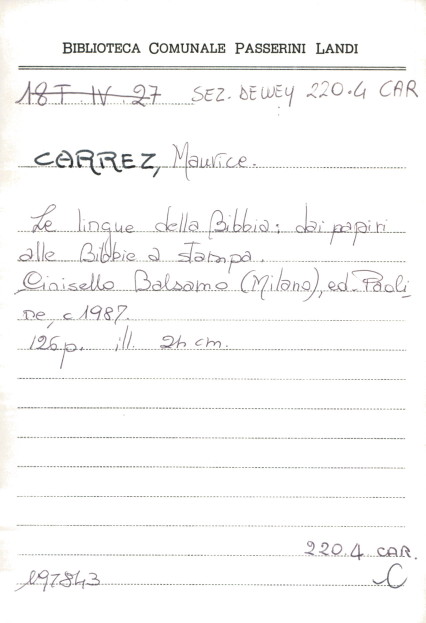 BIBLIOTECA COMUNALE PASSERINI LANDI
18 T. IV. 27 SEZ. DEWEY 220.4 CAR
CARREZ, Maurice.
Le lingue della Bibbia: dai papiri
alle Bibbie a stampa.
Cinisello Balsamo (Milano), ed. Paoli
ne, c 1987.
126 p. ill. 24 cm.
220.4 CAR.
197843 C